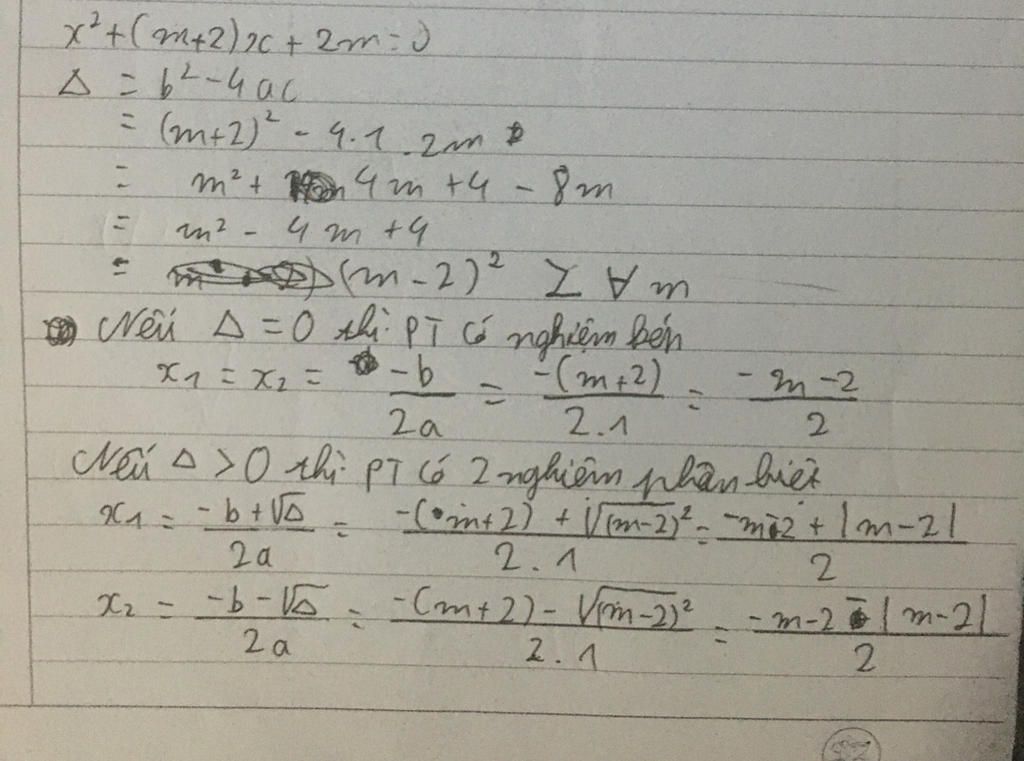 x² + (m+2)x + 2m = 0
Δ = b² - 4ac
= (m+2)² - 4.1.2m
= m² + 4m + 4 - 8m
= m² - 4m + 4
= (m-2)² ≥ ∀ m
Nếu Δ = 0 thì PT có nghiệm kép
x₁ = x₂ = -b/2a = -(m+2)/2.1 = -m-2/2
Nếu Δ > 0 thì PT có 2 nghiệm phân biệt
x₁ = -b+√Δ/2a = -(m+2)+√(m-2)²/2.1 = -m-2+|m-2|/2
x₂ = -b-√Δ/2a = -(m+2)-√(m-2)²/2.1 = -m-2-|m-2|/2